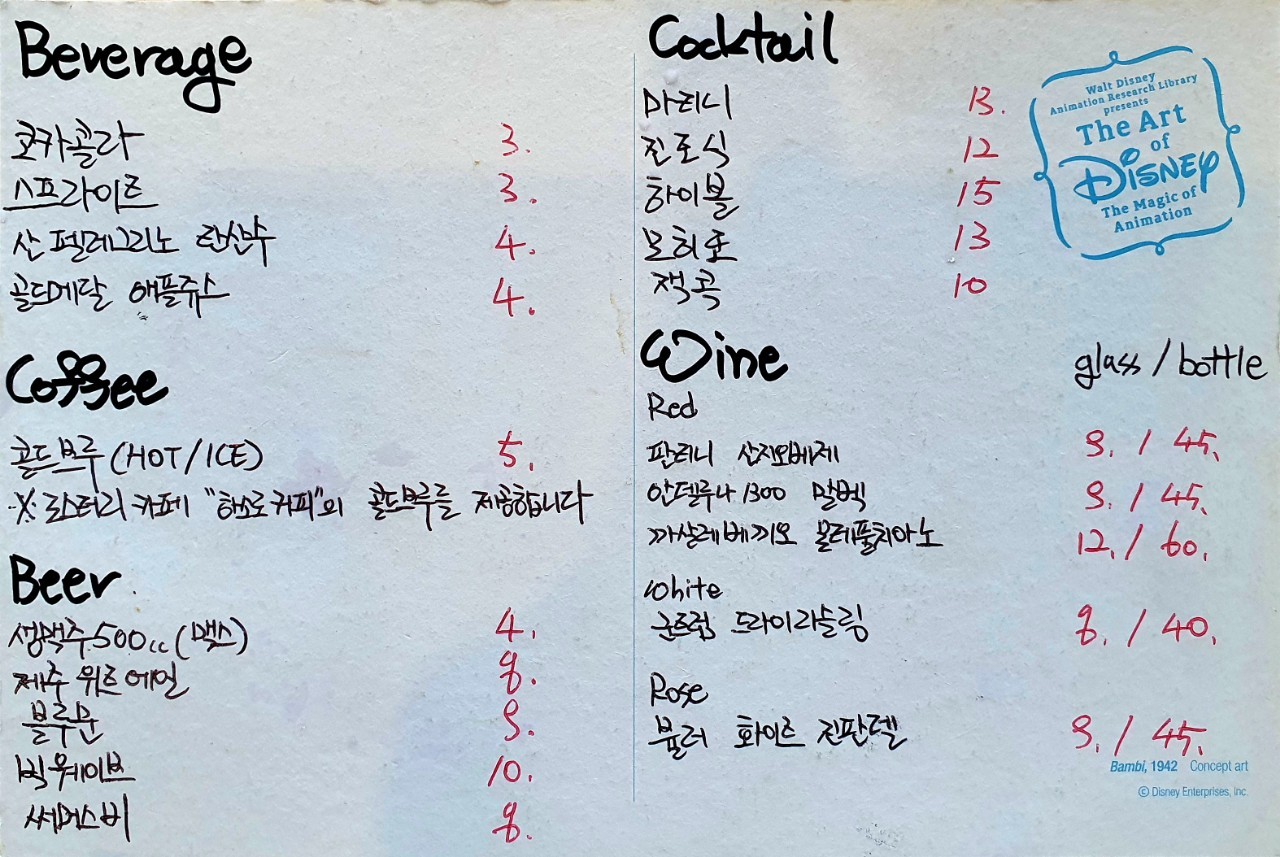 Beverage
코카콜라 3.
스프라이트 3.
산 펠레그리노 탄산수 4.
골드메달 애플쥬스 4.
Coffee
콜드브루 (HOT/ICE) 5.
※ 로스터리 카페 "해소로커피"의 콜드브루를 제공합니다
Beer
생맥주 500cc (맥스) 4.
제주 위트 에일 8.
블루문 9.
빅웨이브 10.
써머스비 8.
Cocktail
마티니 13.
진토닉 12
하이볼 15
모히또 13
잭콕 10
Wine glass / bottle
Red
판티니 산지오베제 9. / 45.
안델루나 1300 말벡 9. / 45.
까살레베끼오 몬테풀치아노 12. / 60.
White
군트럼 드라이 리슬링 8. / 40.
Rose
뷸러 화이트 진판델 9. / 45.
Walt Disney
Animation Research Library
presents
The Art
of
DISNEY
The Magic of
Animation
Bambi, 1942 Concept art
© Disney Enterprises, Inc.